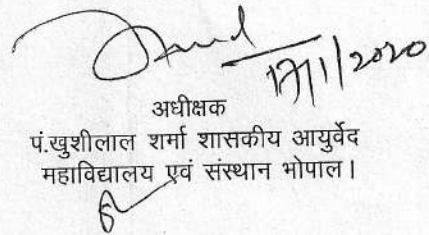 17/1/2020
अधीक्षक
पं.खुशीलाल शर्मा शासकीय आयुर्वेद
महाविद्यालय एवं संस्थान भोपाल।